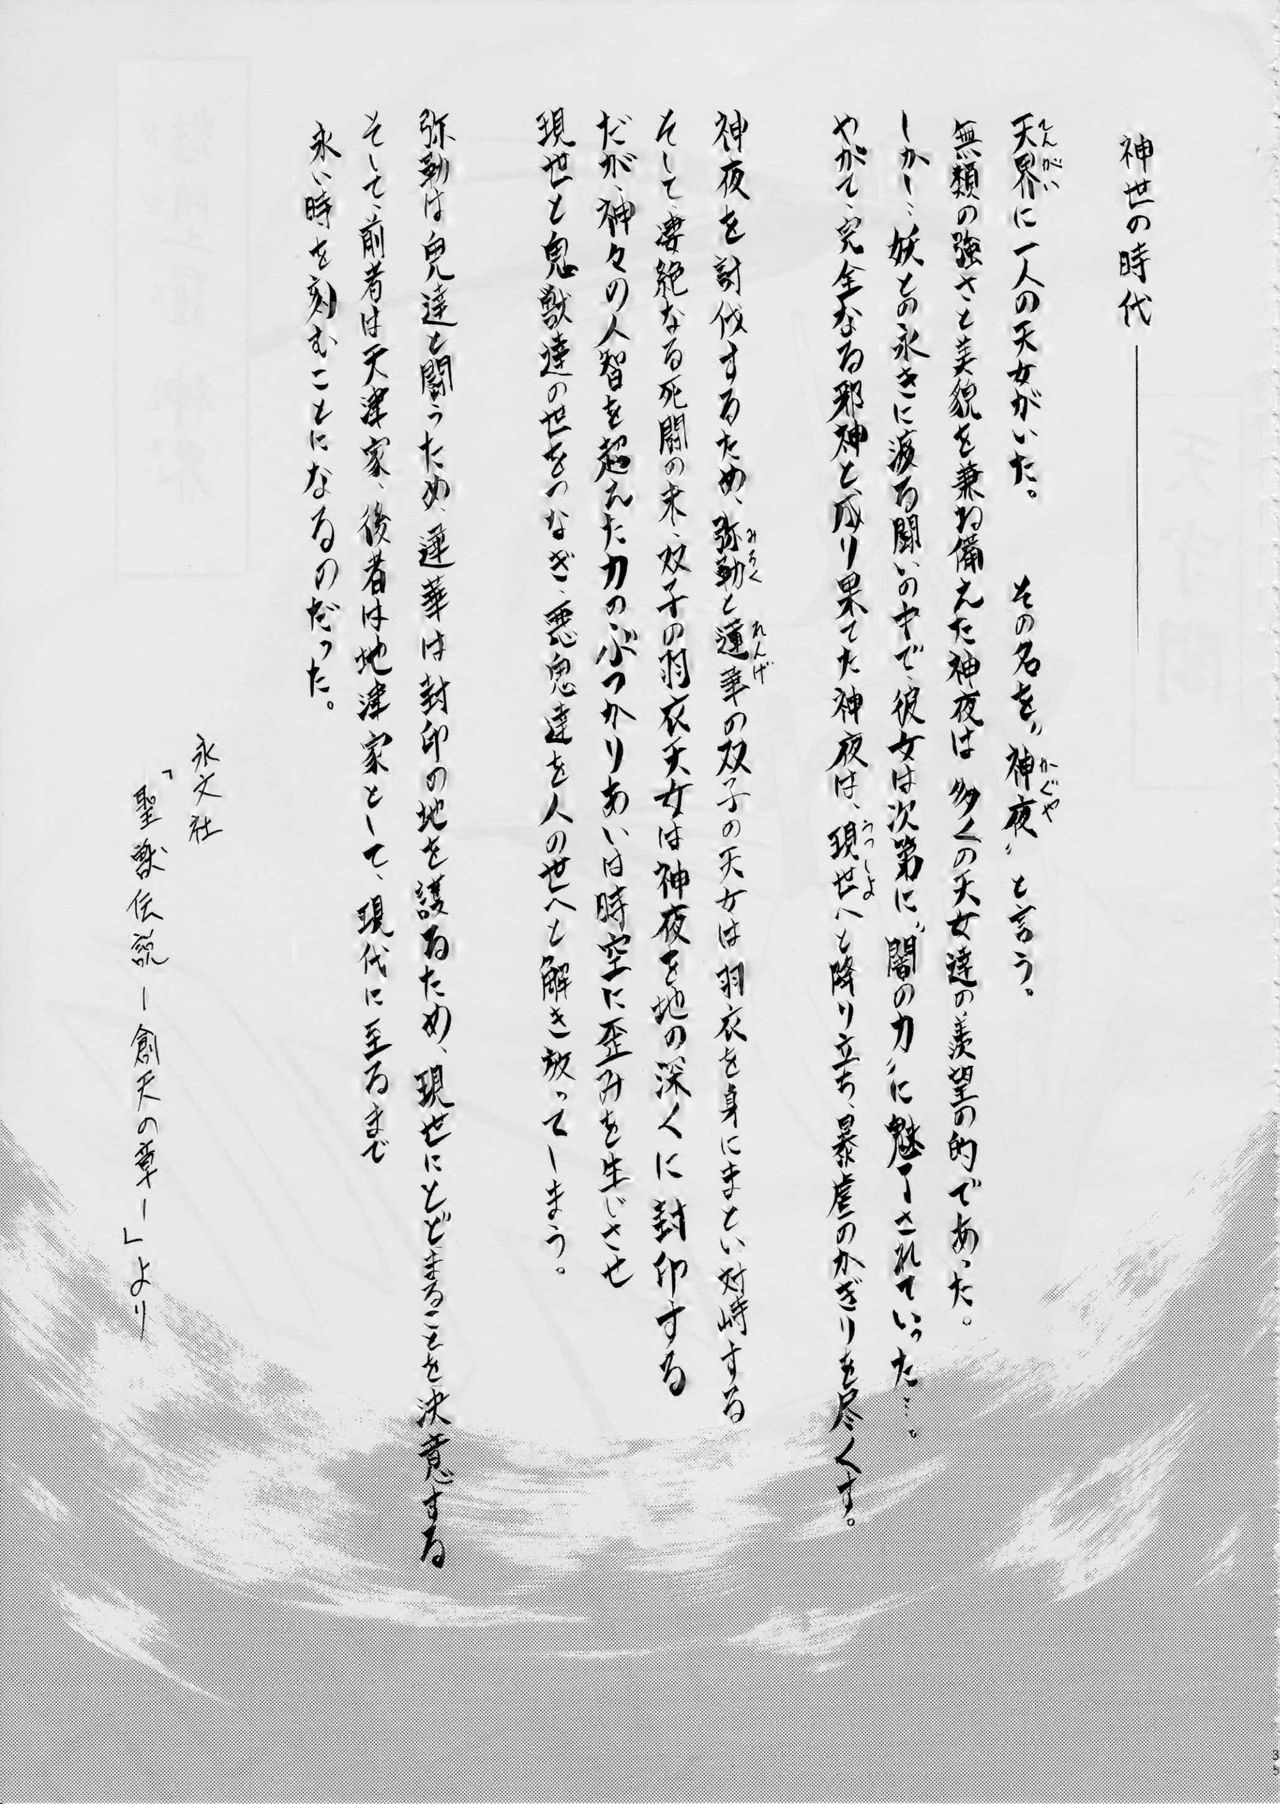 神世の時代――――
天界に一人の天女がいた。 その名を〝神夜〟と言う。
無類の強さと美貌を兼ね備えた神夜は多くの天女達の羨望の的であった。
しかし…妖との永きに渡る闘いの中で、彼女は次第に〝闇の力〟に魅了されていった…。
やがて、完全なる邪神と成り果てた神夜は、現世へと降り立ち、暴虐のかぎりを尽くす。
神夜を討伐するため、弥勒と蓮華の双子の天女は羽衣を身にまとい対峙する
そして、凄絶なる死闘の末、双子の羽衣天女は神夜を地の深くに封印する
だが、神々の人智を超えた力のぶつかりあいは時空に歪みを生じさせ
現世と鬼獣達の世をつなぎ、悪鬼達を人の世へと解き放ってしまう。
弥勒は鬼達と闘うため、蓮華は封印の地を護るため、現世にとどまることを決意する
そして、前者は天津家、後者は地津家として、現代に至るまで
永い時を刻むことになるのだった。
永文社
「聖獣伝説ー創天の章ー」より
てんがい
かぐや
うつしよ
みろく
れんげ
35